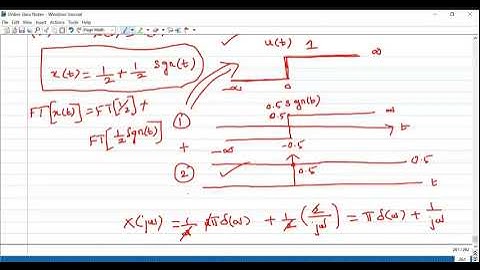 Online Class Notes - Windows Journal
File Edit View Insert Actions Tools Help
Page Width
u(t) 1
x(t) = 1/2 + 1/2 Sgn(t)
-∞ 0 ∞
FT[x(t)] = FT[1/2] +
FT[1/2 Sgn(t)]
1
0.5 Sgn(t)
0.5 ∞
t
+ -∞ -0.5
2
0.5
0.5
t
X(jω) = 1/2 2πδ(ω) + 1/2 (2/jω) = πδ(ω) + 1/jω